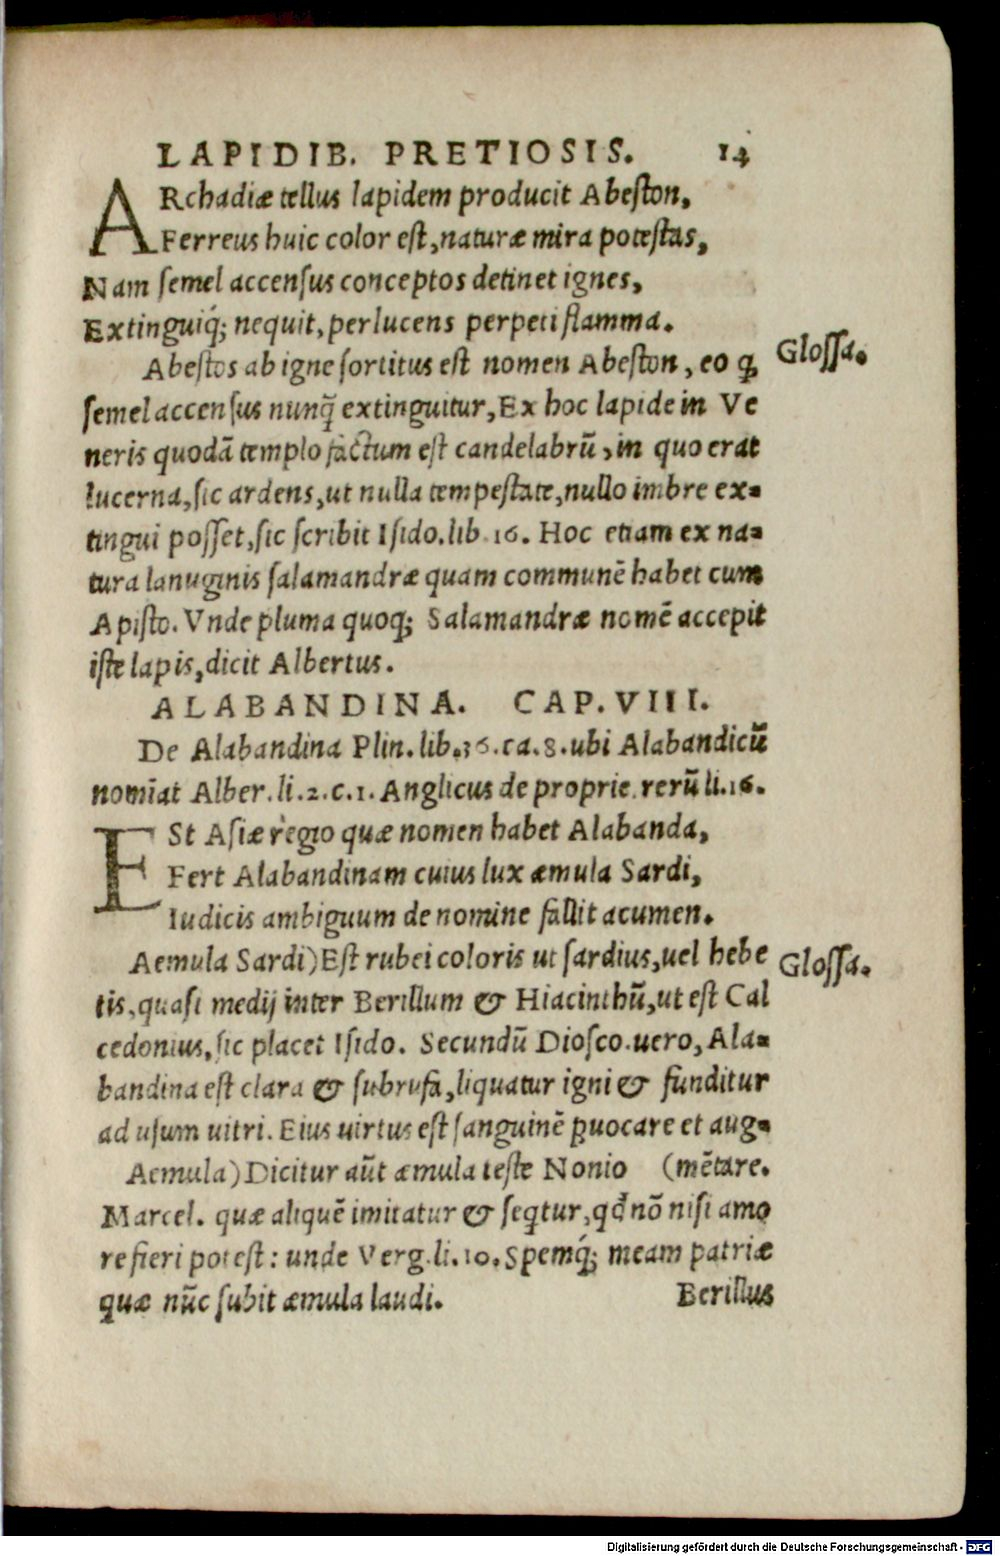 LAPIDIB. PRETIOSIS. 14
ARchadiæ tellus lapidem producit Abeston,
Ferreus huic color est, naturæ mira potestas,
Nam semel accensus conceptos detinet ignes,
Extinguiq́; nequit, perlucens perpeti flamma.
Abestos ab igne sortitus est nomen Abeston, eo ꝙ
Glossa.
semel accensus nunq̃ extinguitur, Ex hoc lapide in Ve
neris quodã templo factum est candelabrũ, in quo erat
lucerna, sic ardens, ut nulla tempestate, nullo imbre ex-
tingui posset, sic scribit Isido. lib. 16. Hoc etiam ex na-
tura lanuginis salamandræ quam communẽ habet cum
Apisto. Vnde pluma quoq; Salamandræ nomẽ accepit
iste lapis, dicit Albertus.
ALABANDINA. CAP. VIII.
De Alabandina Plin. lib. 36. ca. 8. ubi Alabandicũ
nomĩat Alber. li. 2. c. 1. Anglicus de proprie. rerũ li. 16.
ESt Asiæ regio quæ nomen habet Alabanda,
Fert Alabandinam cuius lux æmula Sardi,
Iudicis ambiguum de nomine fallit acumen.
Aemula Sardi) Est rubei coloris ut sardius, uel hebe
Glossa.
tis, quasi medij inter Berillum & Hiacinthũ, ut est Cal
cedonius, sic placet Isido. Secundũ Diosco. uero, Ala-
bandina est clara & subrufa, liquatur igni & funditur
ad usum uitri. Eius uirtus est sanguinẽ ꝓuocare et aug-
Aemula) Dicitur aũt æmula teste Nonio (mẽtare.
Marcel. quæ aliquẽ imitatur & seq̃tur, qđ nõ nisi amo
re fieri potest: unde Verg. li. 10. Spemq́; meam patriæ
quæ nũc subit æmula laudi. Berillus
Digitalisierung gefördert durch die Deutsche Forschungsgemeinschaft - DFG